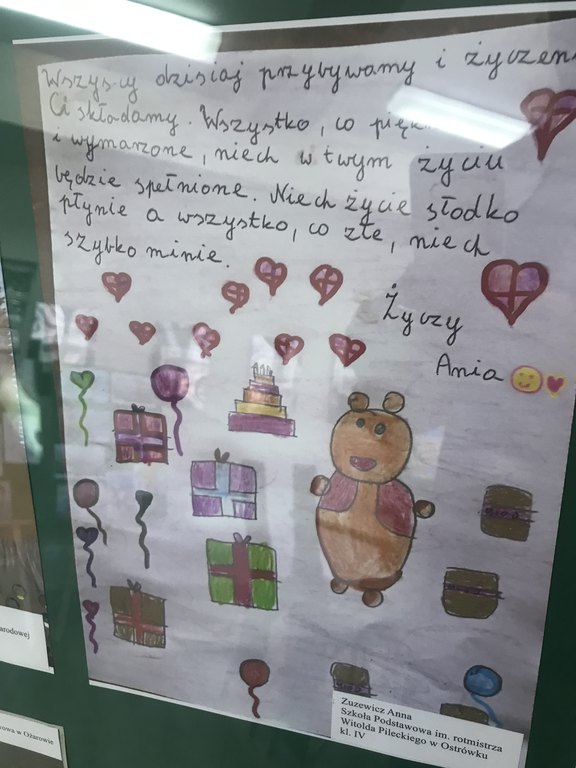 Wszyscy dzisiaj przybywamy i życzen
Ci składamy. Wszystko, co pięk
i wymarzone, niech w twym życiu
będzie spełnione. Niech życie słodko
płynie a wszystko, co złe, niech
szybko minie.
Życzy
Ania
arodowej
owa w Ożarowie
Zuzewicz Anna
Szkoła Podstawowa im. rotmistrza
Witolda Pileckiego w Ostrówku
kl. IV